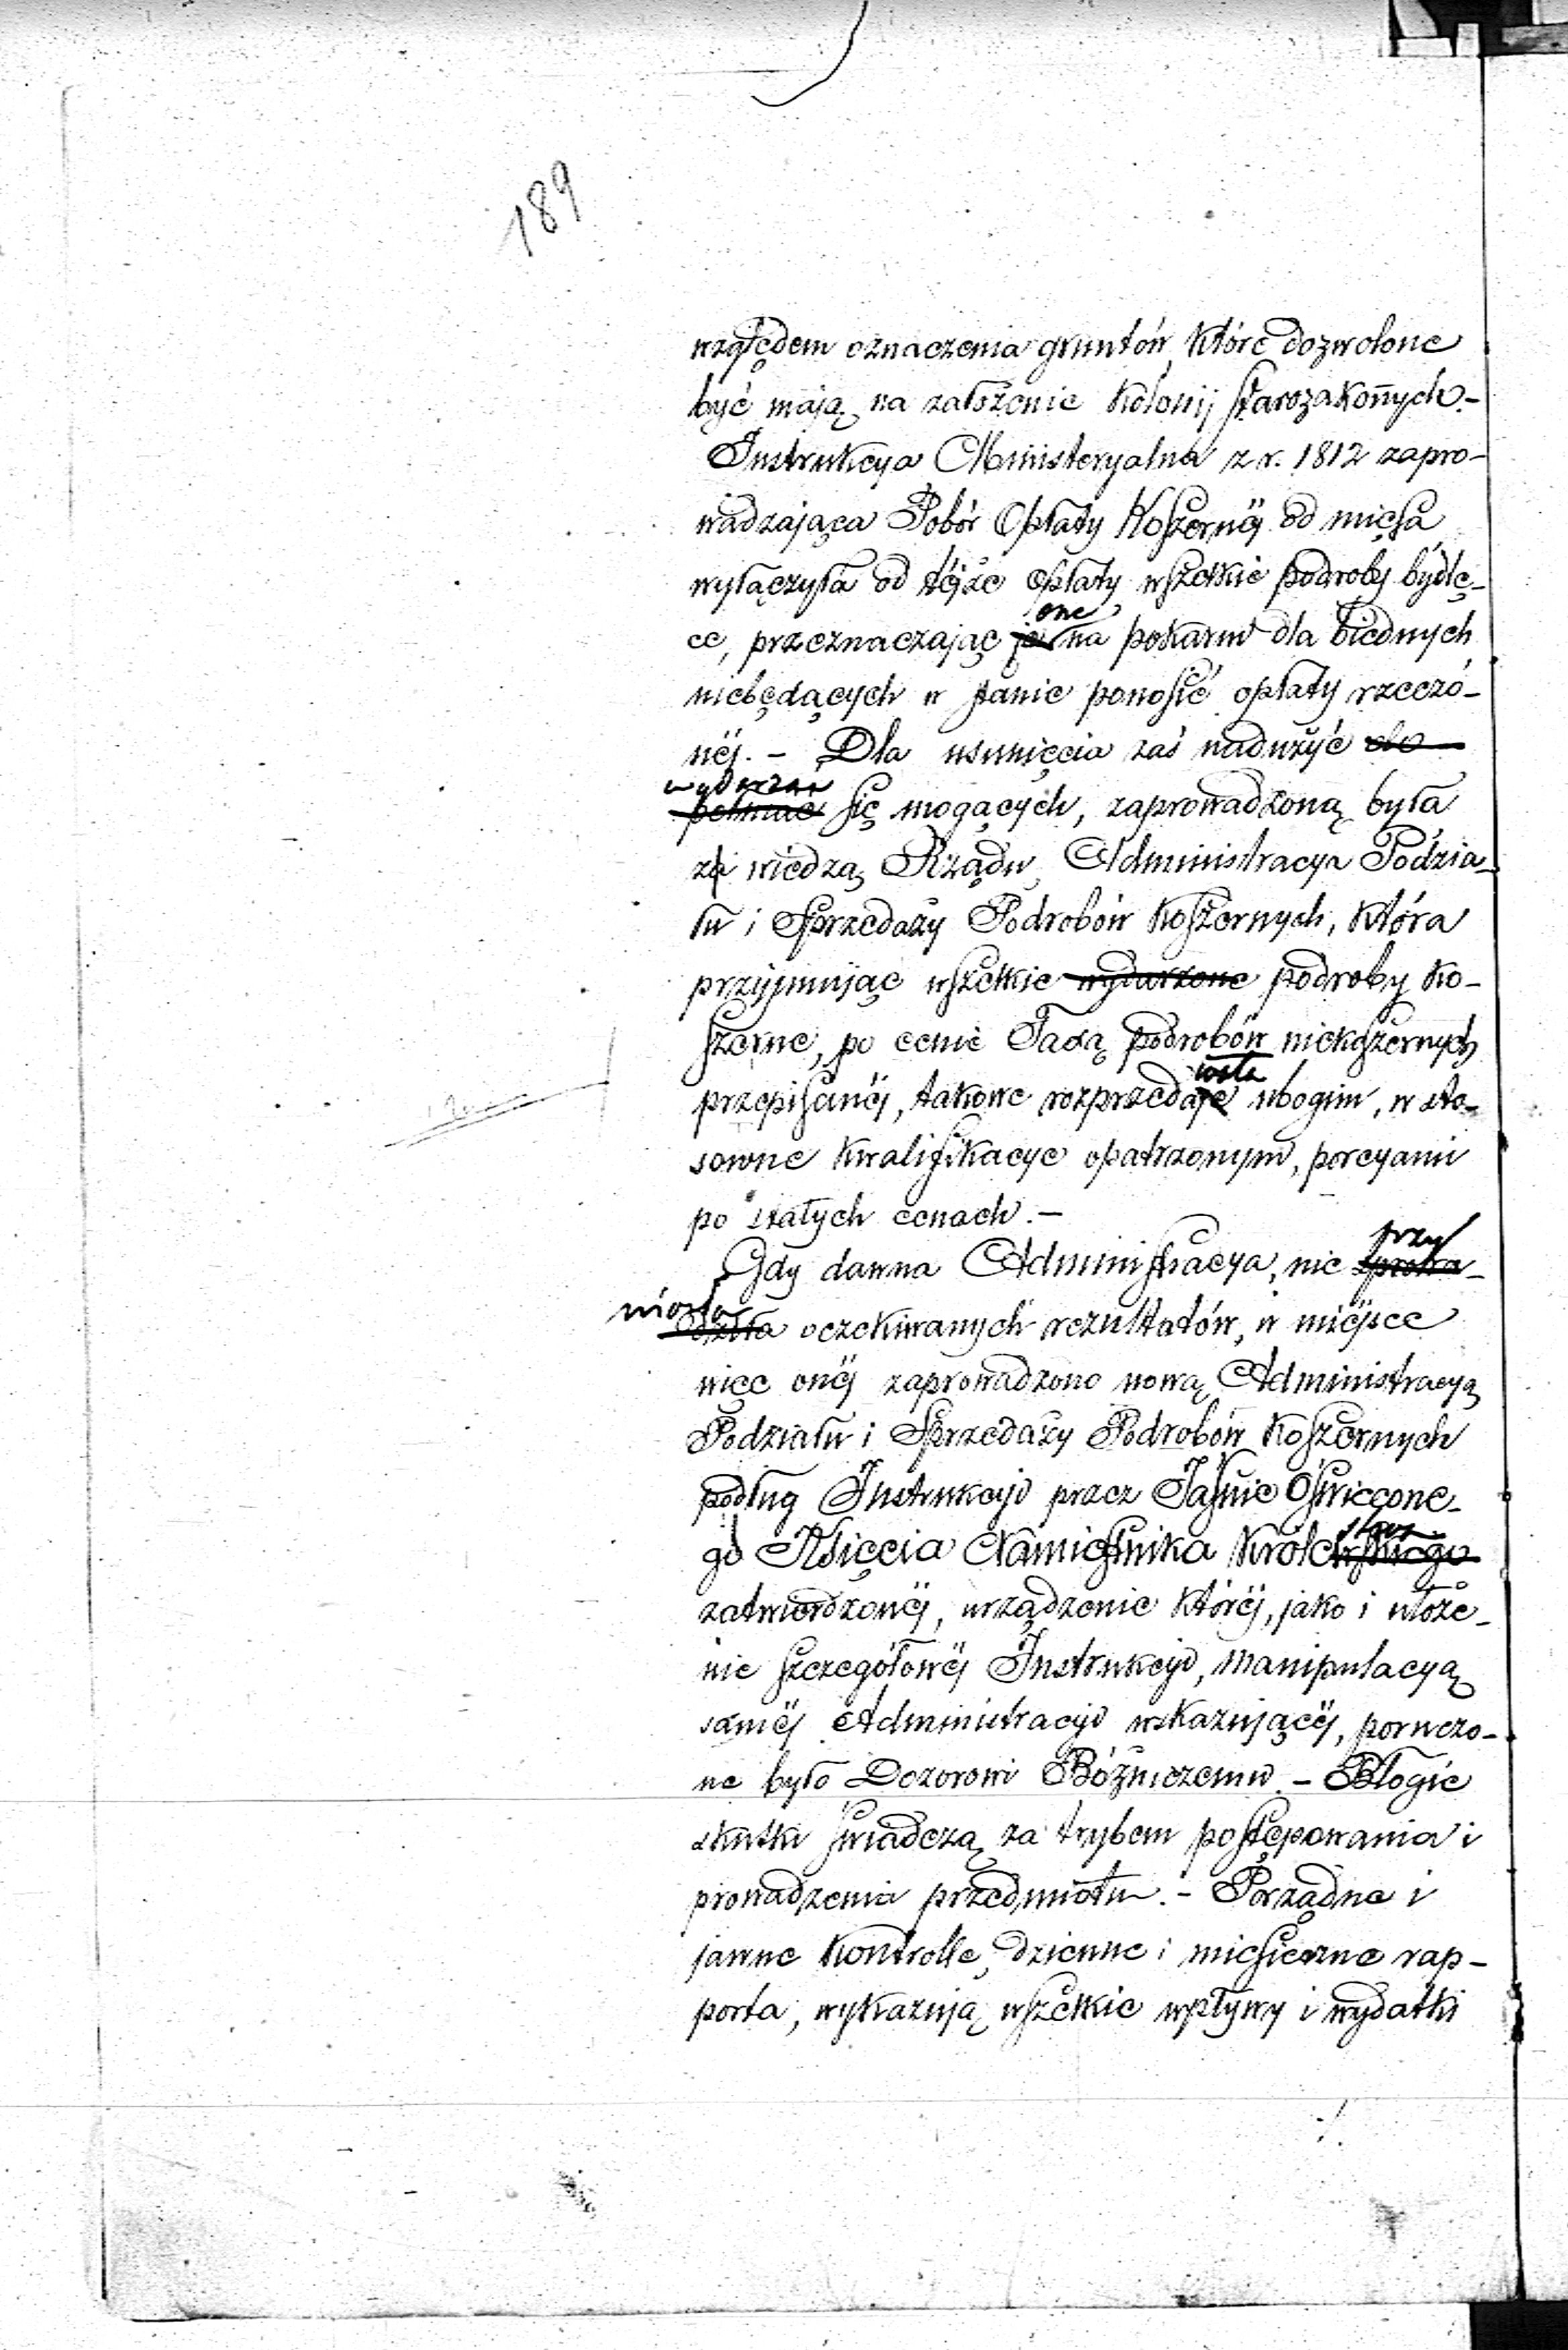 189
względem oznaczenia gruntów, które dozwolone
być mają na założenie kolonij starozakonnych. -
Instrukcya Ministeryalna z r. 1812 zapro-
wadzająca Pobór Opłaty Koszernéj od mięsa
wyłączyła od téjże opłaty wszelkie podroby bydlę-
ce, przeznaczając je one na pokarm dla biednych
niebędących w stanie ponosić opłaty rzeczo-
néj. - Dla usunięcia zaś nadużyć
wydarzać
się mogących, zaprowadzoną była
za wiedzą Rządu, Administracya Podzia-
łu i Sprzedaży Podrobów Koszernych, która
przyjmując wszelkie wydarzone podroby ko-
szerne, po cenie Taxą podrobów niekoszernych
przepisanéj, takowe rozprzedaje ubogim, w sto-
sowne kwalifikacye opatrzonym, porcyami
po stałych cenach. -
przy
Gdy dawna Administracya, nie sprowa-
niosła
dziła oczekiwanych rezultatów, w miéjsce
więc onéj zaprowadzono nową Administracyą
Podziału i Sprzedaży Podrobów Koszernych
podług Instrukcyi przez Jaśnie Oświecone-
go Księcia Namiestnika Królewskiego
zatwierdzonéj, urządzenie któréj, jako i ułoże-
nie szczegółowéj Instrukcyi, manipulacyą
saméj Administracyi wskazującéj, poruczo-
ne było Dozorowi Bóżniczemu. - Błogie
skutki świadczą za trybem postępowania i
prowadzenia przedmiotu. - Porządne i
jawne Kontrolle, dzienne i miesięczne rap-
porta, wykazują wszelkie wpływy i wydatki
./.